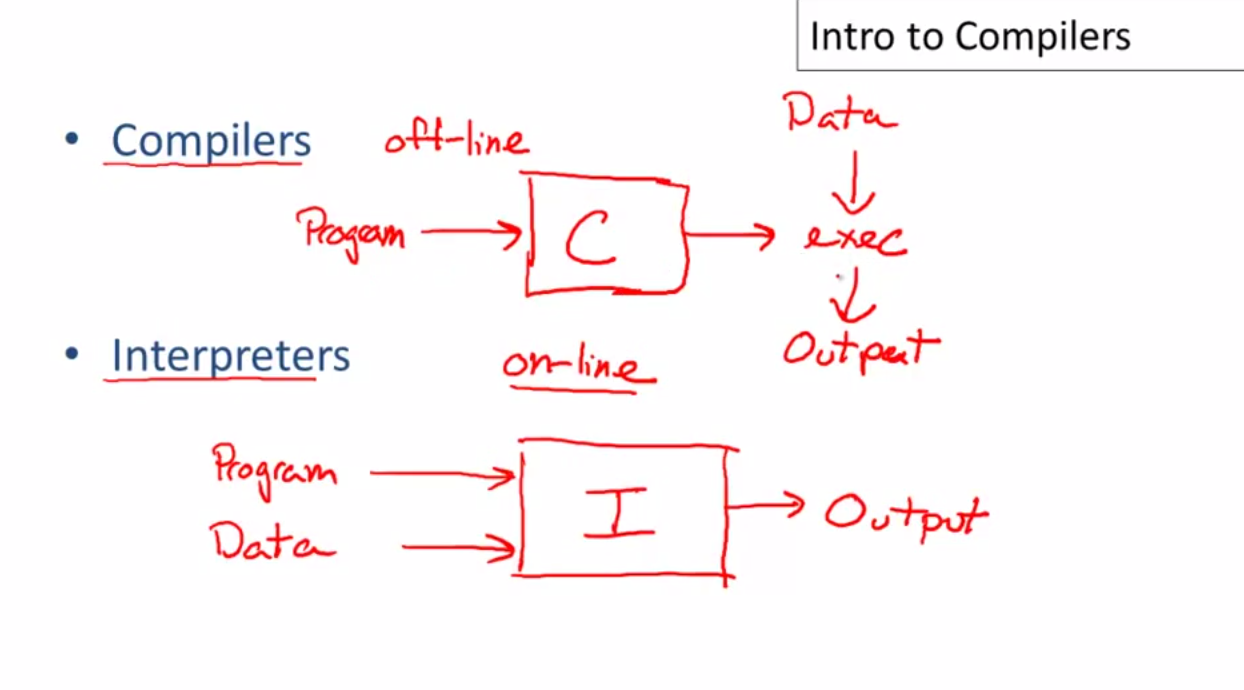 Intro to Compilers
Data
• Compilers off-line
Program C exec
Output
• Interpreters on-line
Program
I Output
Data